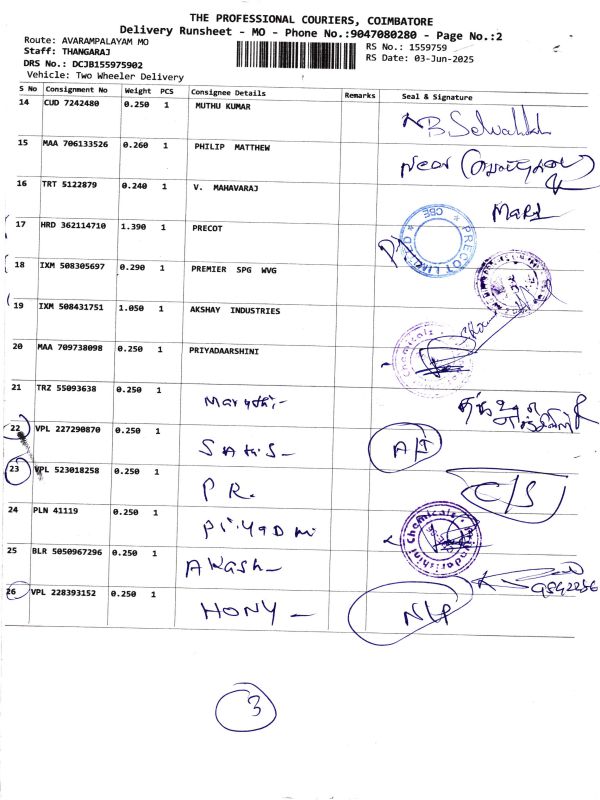 THE PROFESSIONAL COURIERS, COIMBATORE
Delivery Runsheet - MO - Phone No.:9047080280 - Page No.:2
Route: AVARAMPALAYAM MO
RS No.: 1559759
Staff: THANGARAJ
RS Date: 03-Jun-2025
DRS No.: DCJB155975902
Vehicle: Two Wheeler Delivery
S No Consignment No Weight PCS Consignee Details Remarks Seal & Signature
14 CUD 7242480 0.250 1 MUTHU KUMAR
15 MAA 706133526 0.260 1 PHILIP MATTHEW Near
16 TRT 5122879 0.240 1 V. MAHAVARAJ
17 HRD 362114710 1.390 1 PRECOT PRECOT CBE
18 IXM 508305697 0.290 1 PREMIER SPG WVG
19 IXM 508431751 1.050 1 AKSHAY INDUSTRIES
20 MAA 709738098 0.250 1 PRIYADAARSHINI Chemicals
21 TRZ 55093638 0.250 1
22 VPL 227290870 0.250 1 SAtiS-
23 VPL 523018258 0.250 1 PR. C/S
24 PLN 41119 0.250 1 Priyadarshini Chemicals
25 BLR 5050967296 0.250 1 AKash-
26 VPL 228393152 0.250 1 HONY - N/P
3